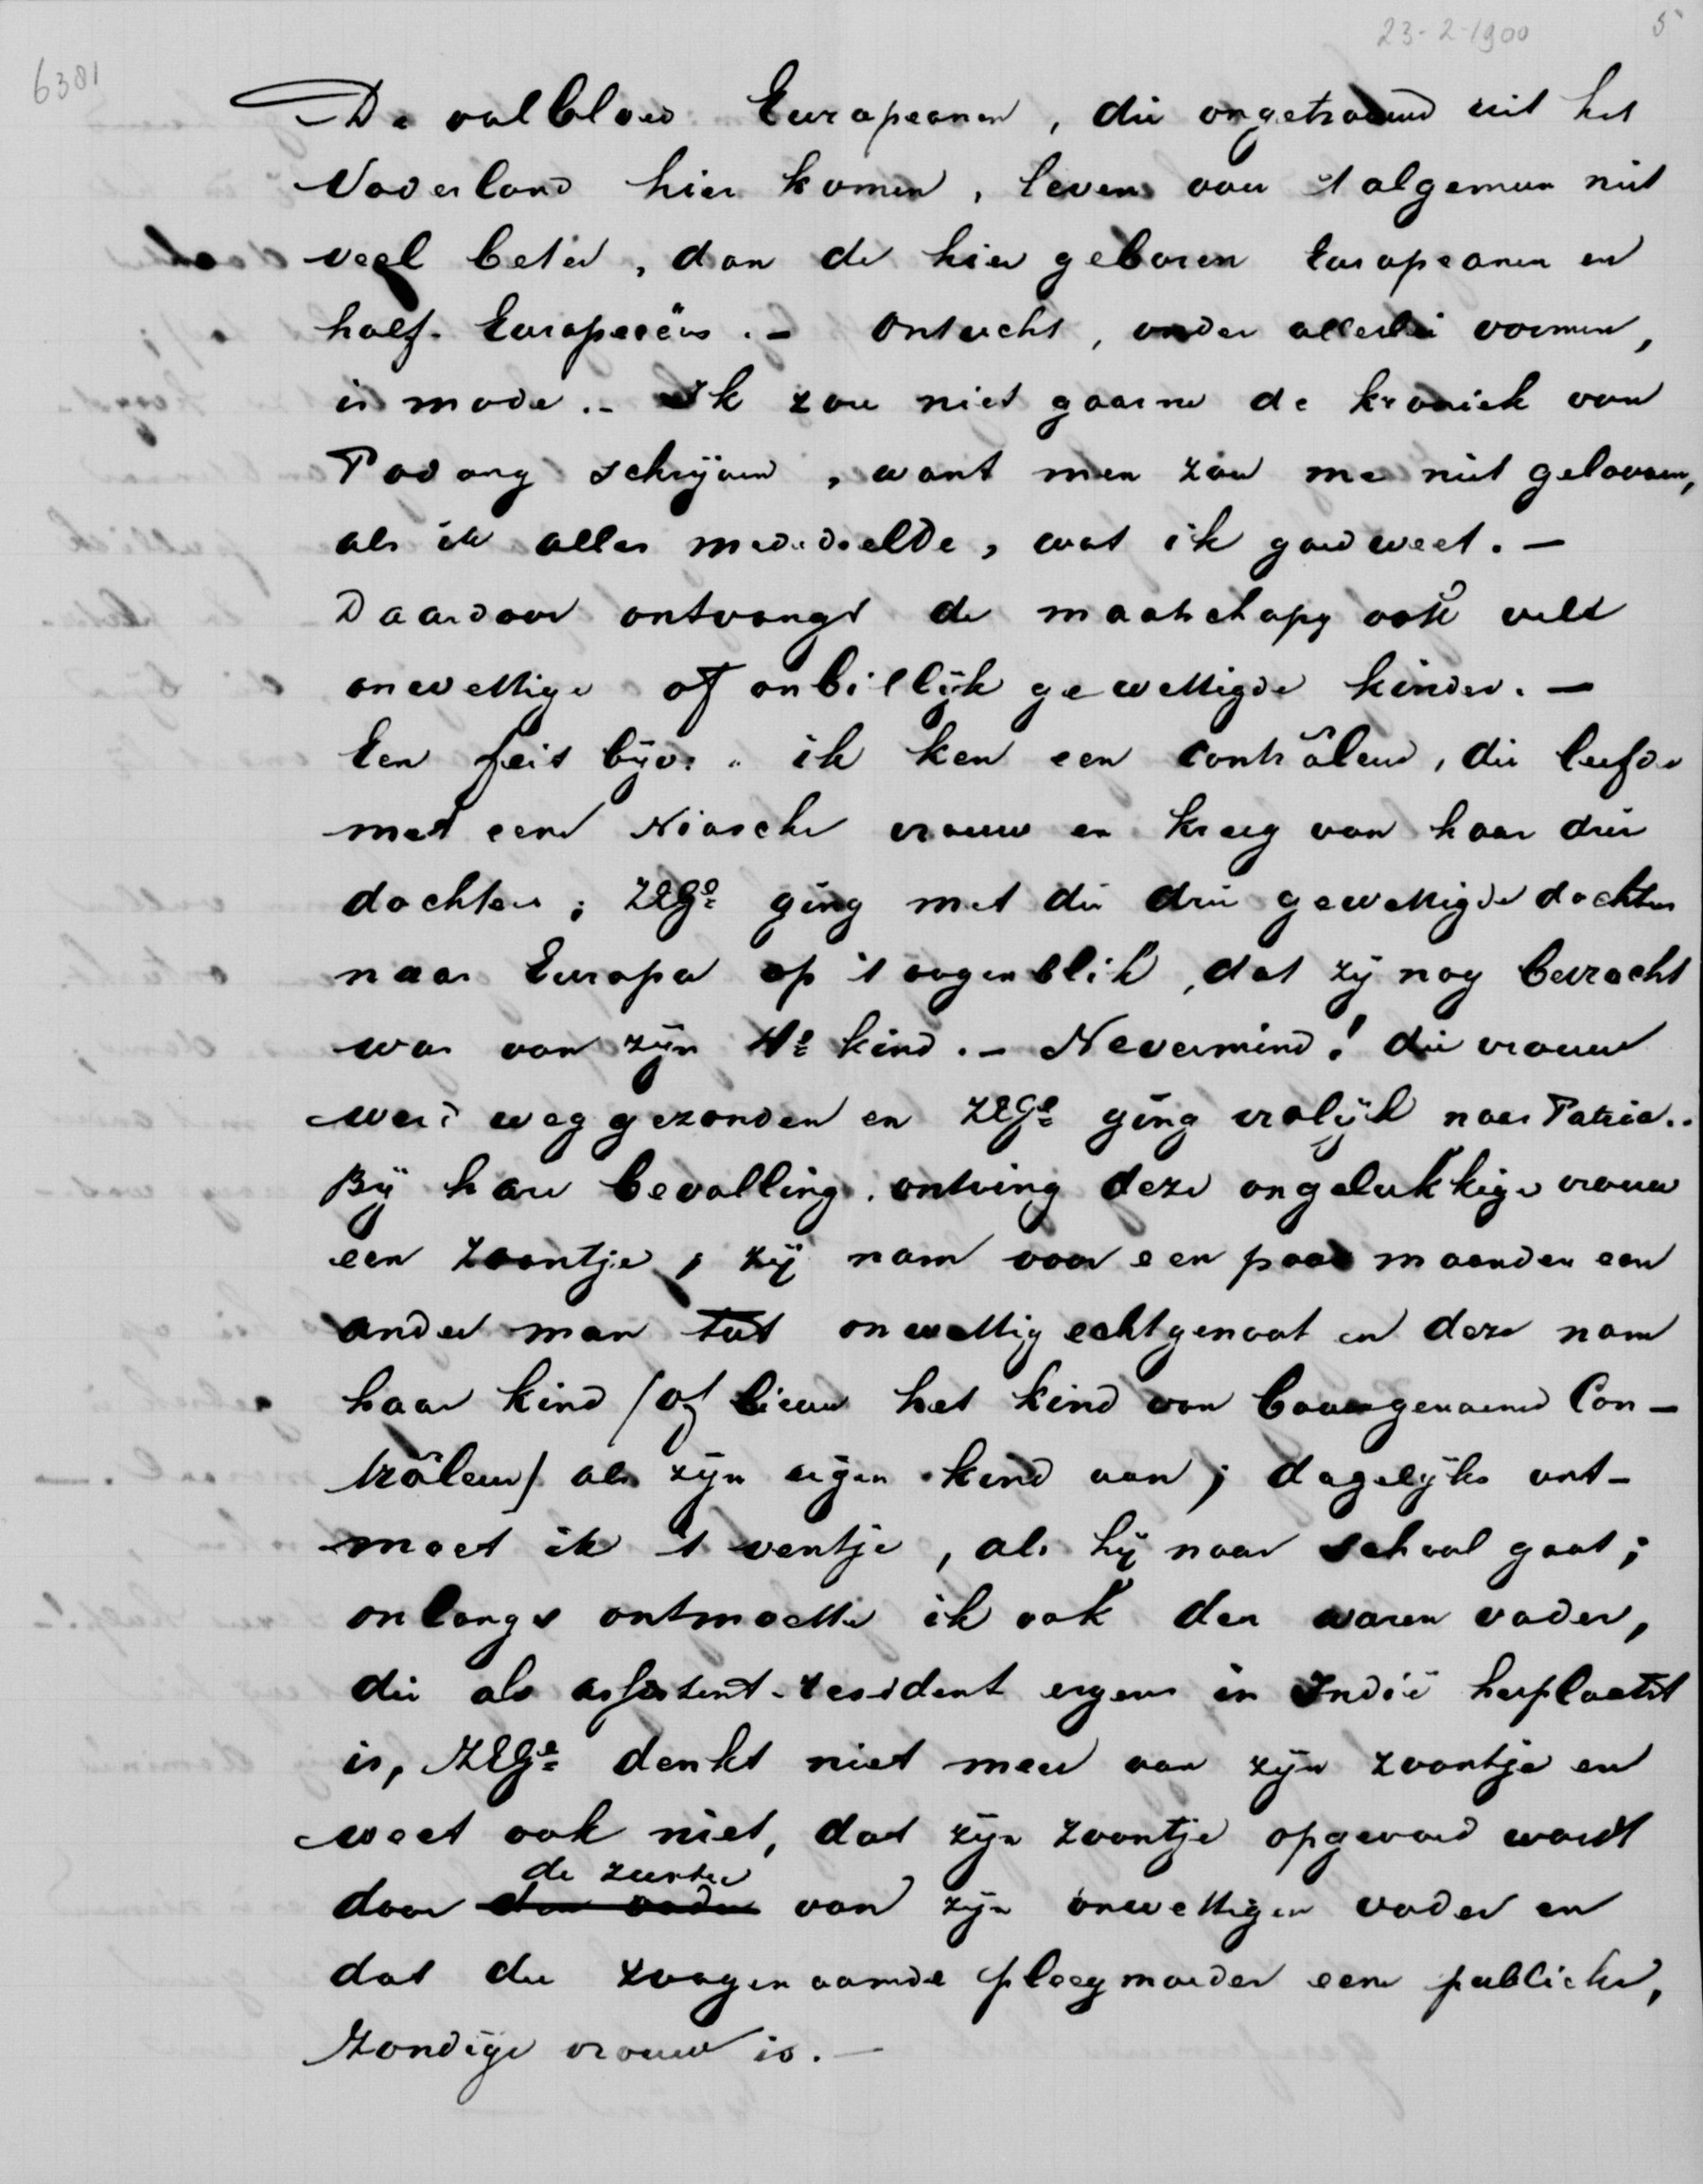 23-2-1900 5
6381
De volbloed Europeanen, die ongetrouwd uit het
Vaderland hier komen, leven over 't algemeen niet
veel beter, dan de hier geboren Europeanen en
half-Europeeërs. – Ontucht, onder allerlei vormen,
is mode. – Ik zou niet gaarne de kroniek van
Padang schrijven, want men zou me niet gelooven,
als ik alles mededeelde, wat ik goed weet. –
Daardoor ontvangt de maatschapy ook vele
onwettige of onbillijk gewettigde kinder. –
Een feit byv. ik ken een contrôleur, die leefde
met eene Niasche vrouw en kreeg van haar drie
dochters; ZEGe ging met die drie gewettigde dochters
naar Europa op 't oogenblik, dat zij nog bevracht
was van zijn 4e kind. – Nevermind! die vrouw
werd weggezonden en ZEGe ging vrolijk naar Patria..
Bij hare bevalling ontving deze ongelukkige vrouw
een zoontje; zij nam voor een paar maanden een
ander man tot onwettig echtgenoot en deze nam
haar kind (of liever het kind van bovengenoemd Con-
trôleur) als zijn eigen kind aan; dagelijks ont-
moet ik 't ventje, als hij naar school gaat;
onlangs ontmoette ik ook den waren vader,
die als assistent-resident ergens in Indië herplaatst
is, ZEGe denkt niet meer aan zijn zoontje en
weet ook niet, dat zijn zoontje opgevoed wordt
de zuster
door den vader van zijn onwettigen vader en
dat die zoogenaamde pleegmoeder eene publieke,
zondige vrouw is. –